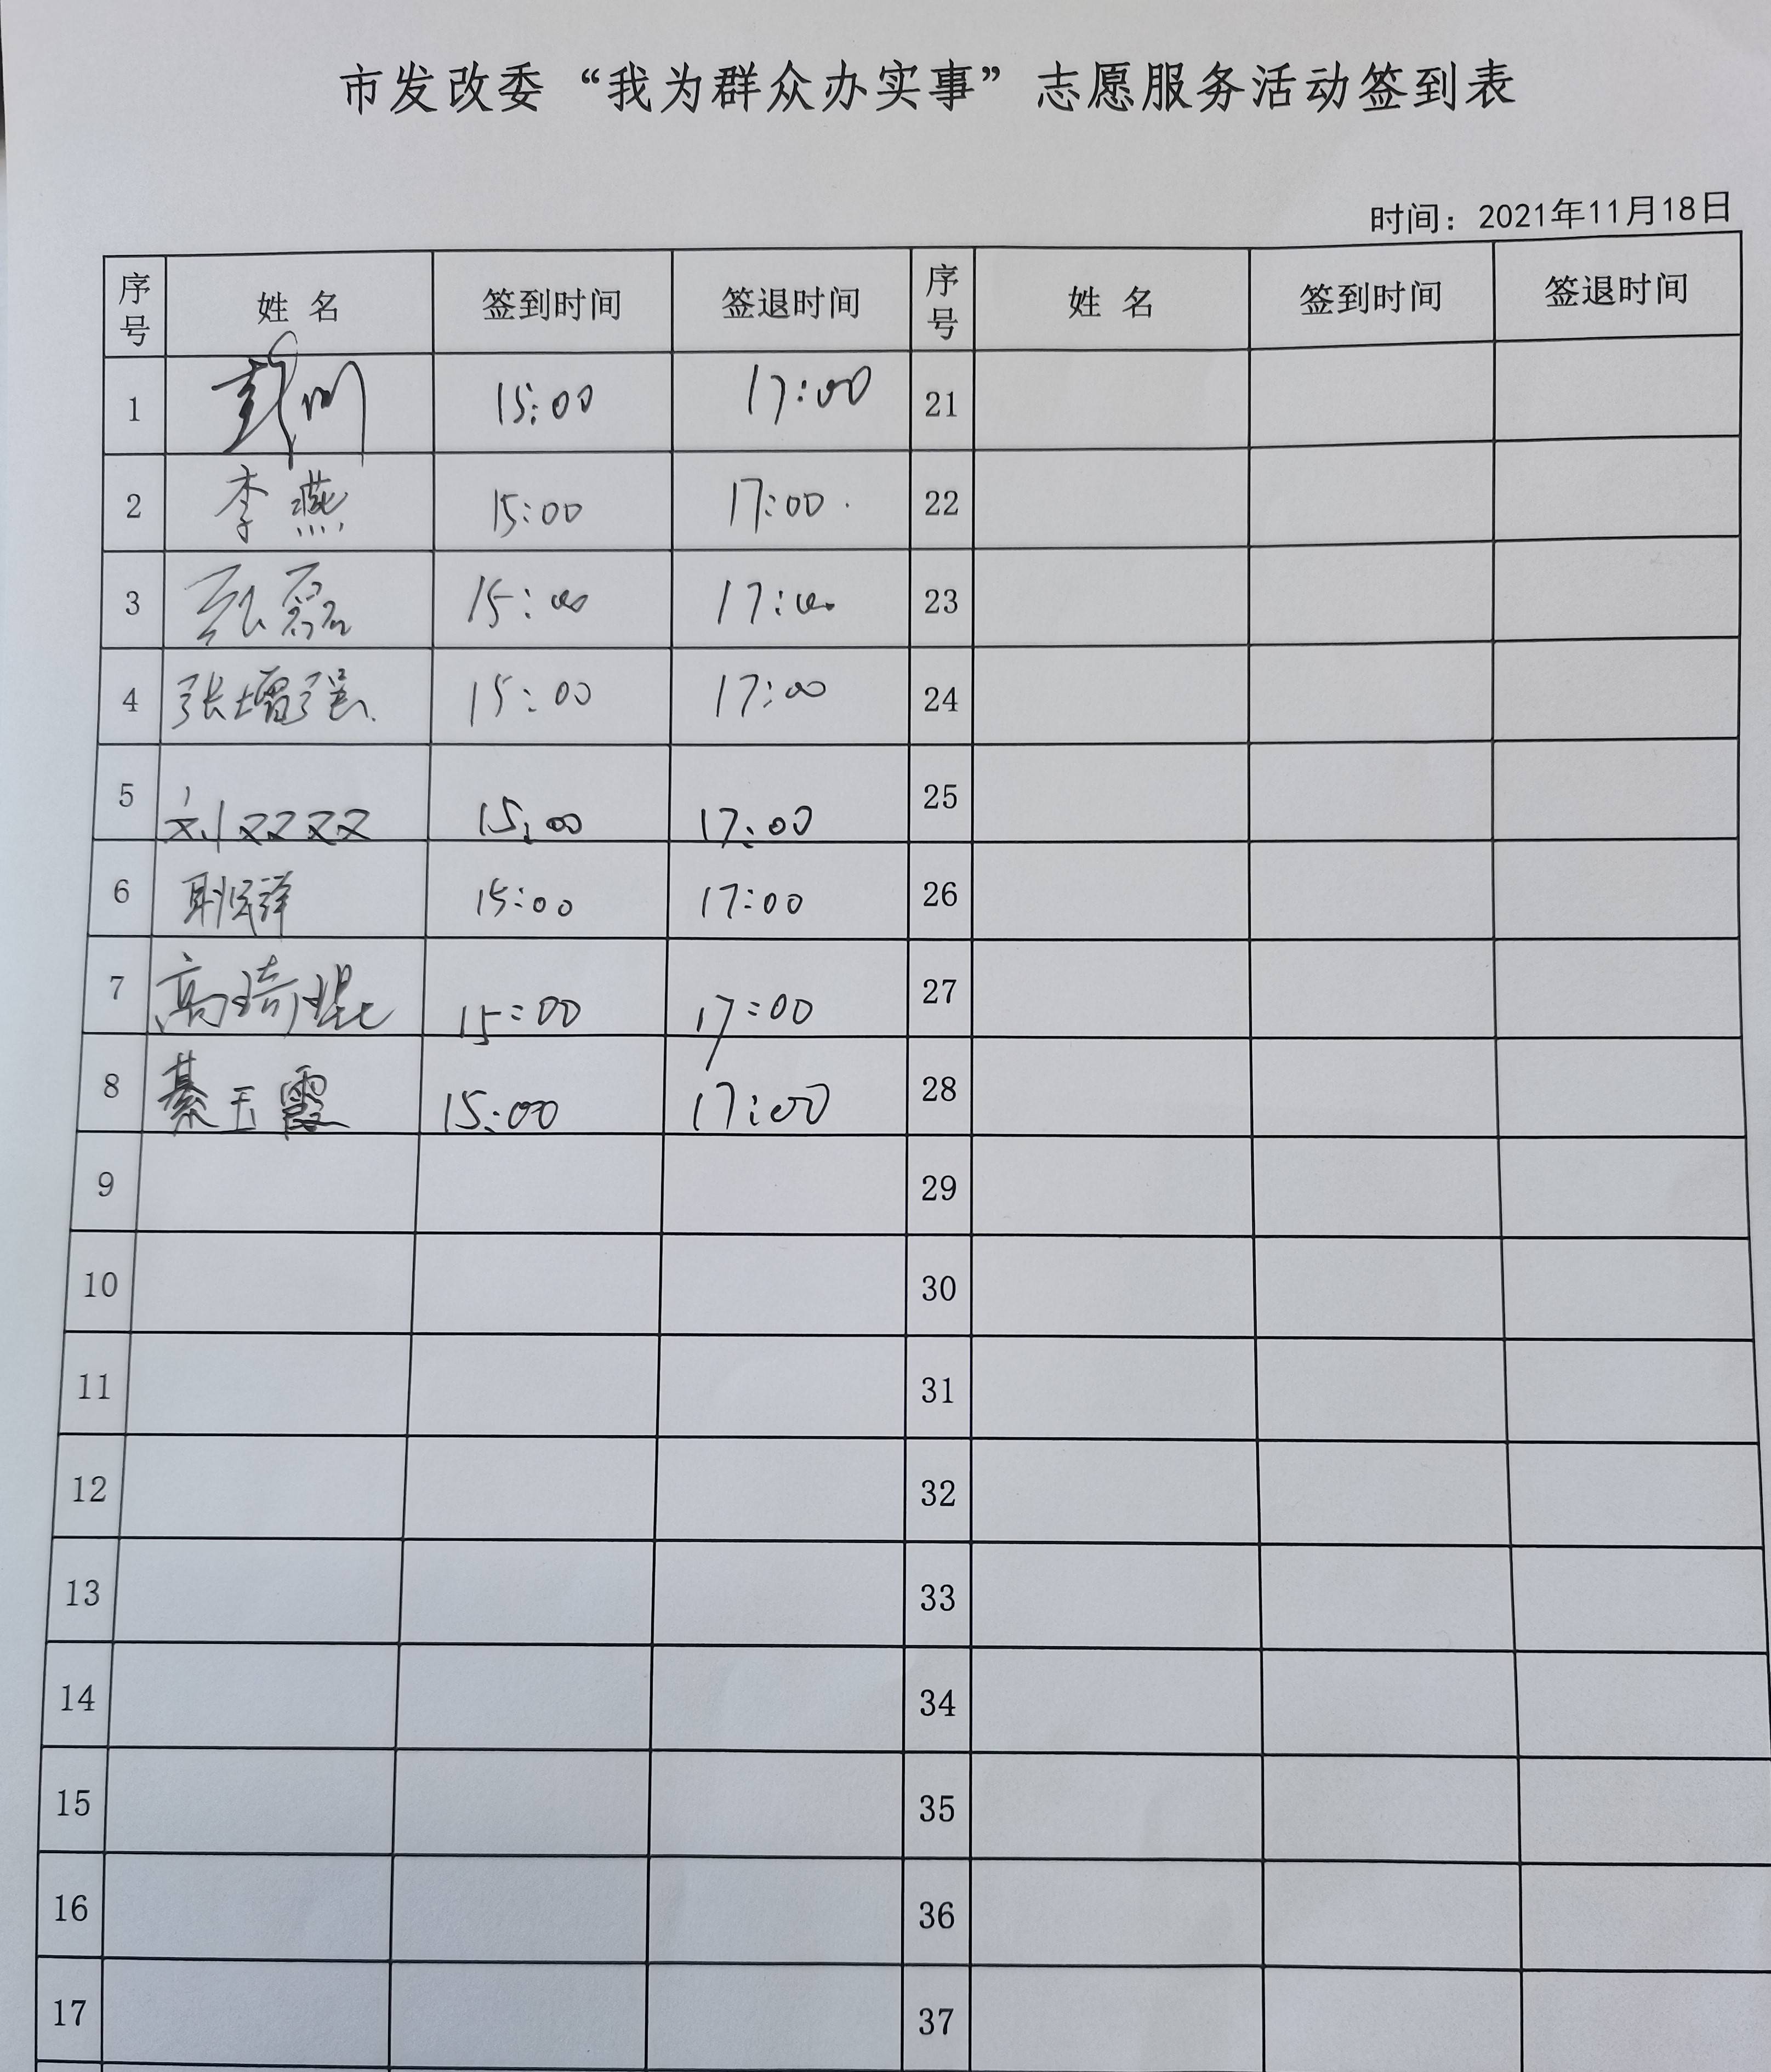 市发改委“我为群众办实事”志愿服务活动签到表
时间：2021年11月18日
序号 姓 名 签到时间 签退时间 序号 姓 名 签到时间 签退时间
1 15:00 17:00 21
2 李燕 15:00 17:00 22
3 张磊 15:00 17:00 23
4 张增强 15:00 17:00 24
5 刘双双 15:00 17:00 25
6 耿民祥 15:00 17:00 26
7 高琦琨 15:00 17:00 27
8 綦玉霞 15:00 17:00 28
9 29
10 30
11 31
12 32
13 33
14 34
15 35
16 36
17 37